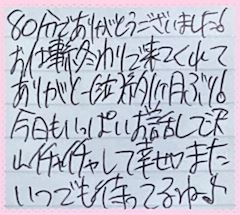 80分でありがとうございました!
お仕事終わりで来てくれて
ありがとー 約1ヶ月ぶり!
今日もいっぱいお話して沢
山イチャイチャして幸せ♡また
いつでも待ってるね♪